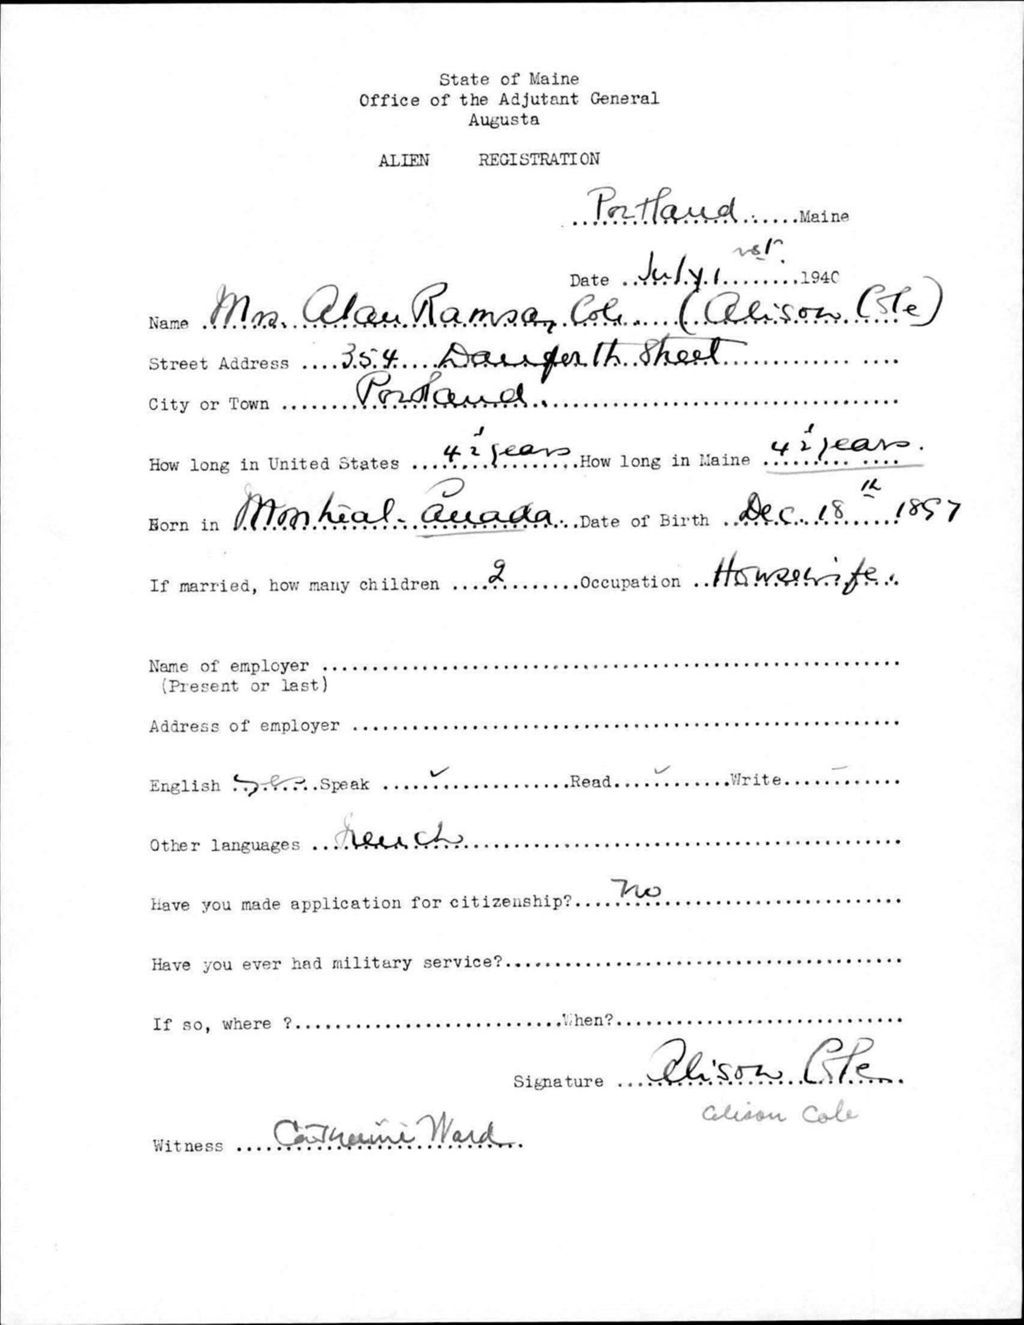 State of Maine
Office of the Adjutant General
Augusta
ALIEN REGISTRATION
Portland Maine
Date July 1 1940
Name Mrs. Alan Ramsay Cole (Alison Cole)
Street Address 354 Danforth Street
City or Town Portland.
How long in United States 4½ years How long in Maine 4½ years.
Born in Montreal - Canada Date of Birth Dec. 18th 1897
If married, how many children 2 Occupation Housewife
Name of employer
(Present or last)
Address of employer
English yes Speak ✓ Read ✓ Write
Other languages French
Have you made application for citizenship? No
Have you ever had military service?
If so, where ? When?
Signature Alison Cole
Alison Cole
Witness Catherine Ward